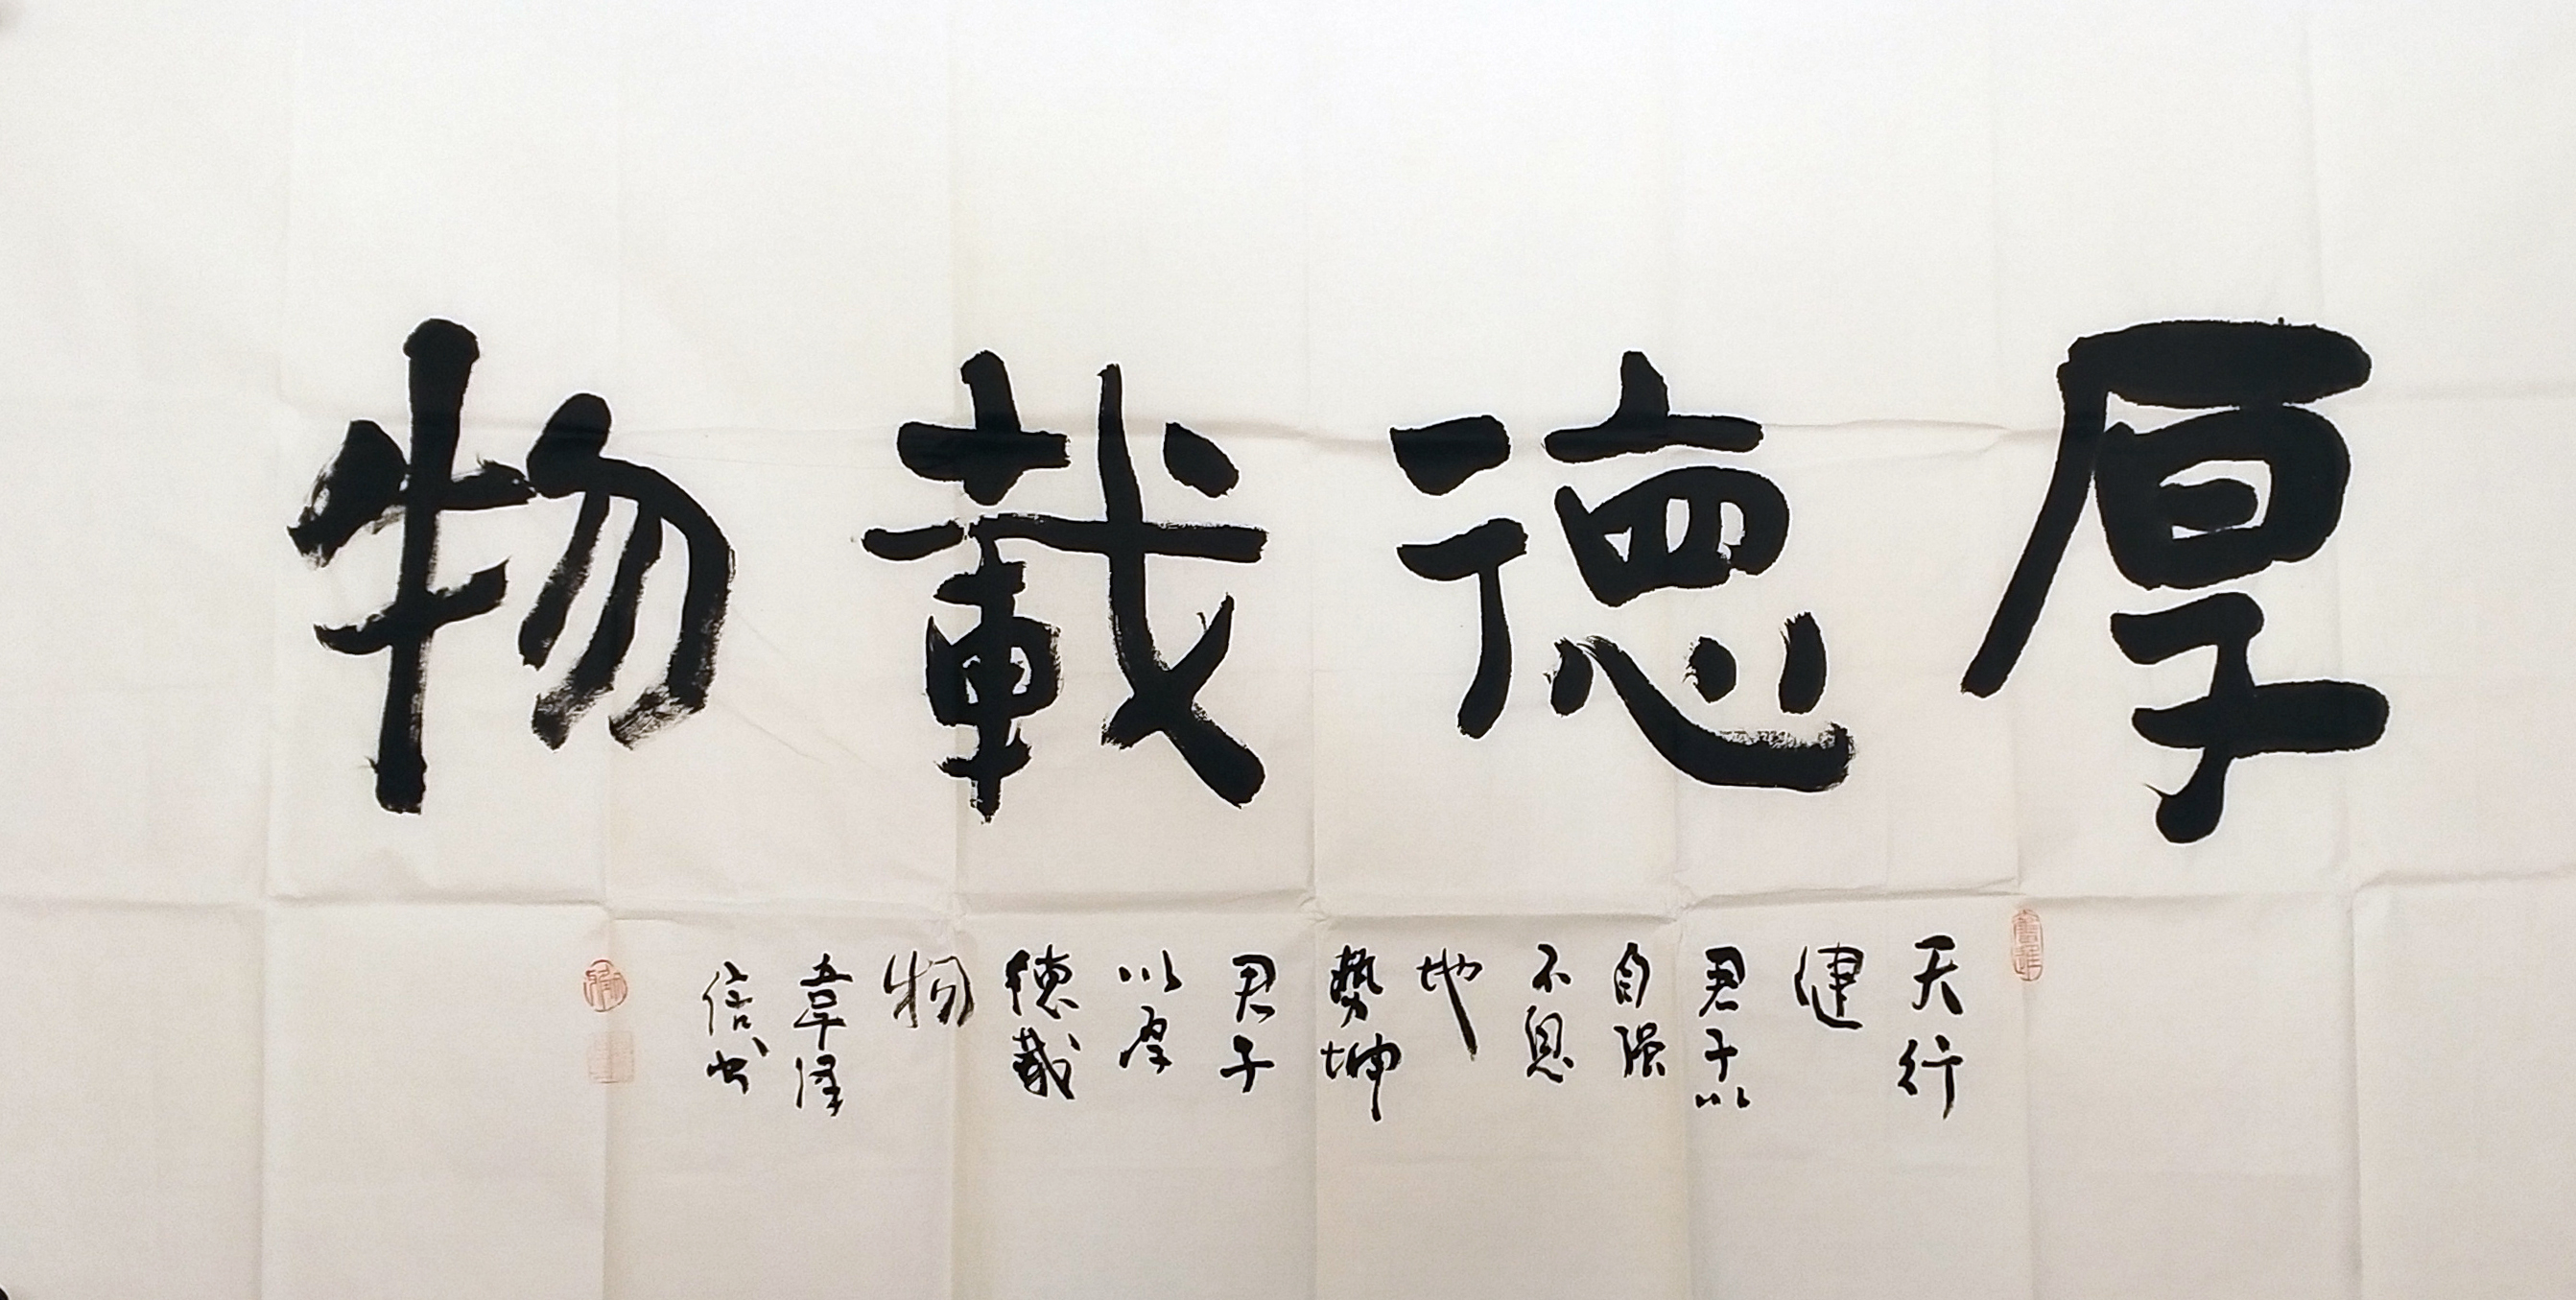 厚德載物
天行
健
君子以
自强
不息
地
勢坤
君子
以厚
德載
物
韋澤
信书